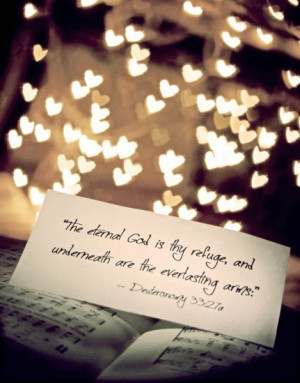 "the eternal God is thy refuge, and
underneath are the everlasting arms:"
-- Deuteronomy 33:27a